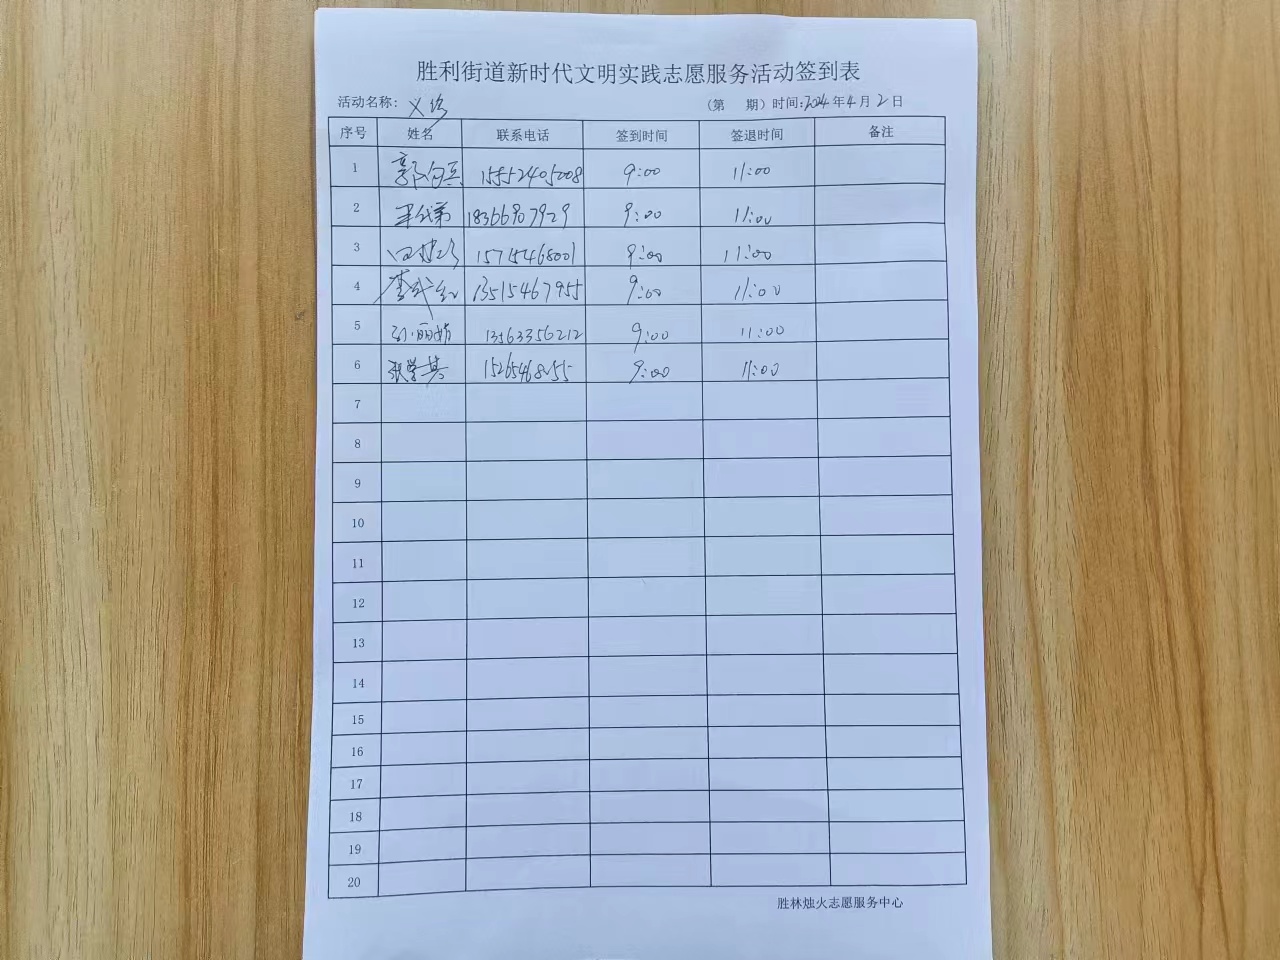 胜利街道新时代文明实践志愿服务活动签到表
活动名称: 义诊 (第 期) 时间:2024年4月2日
序号 姓名 联系电话 签到时间 签退时间 备注
1 15552405008 9:00 11:00
2 18366907929 9:00 11:00
3 15715468001 9:00 11:00
4 13515467955 9:00 11:00
5 孙丽娟 13563356212 9:00 11:00
6 张学其 15265468255 9:00 11:00
7
8
9
10
11
12
13
14
15
16
17
18
19
20
胜林烛火志愿服务中心